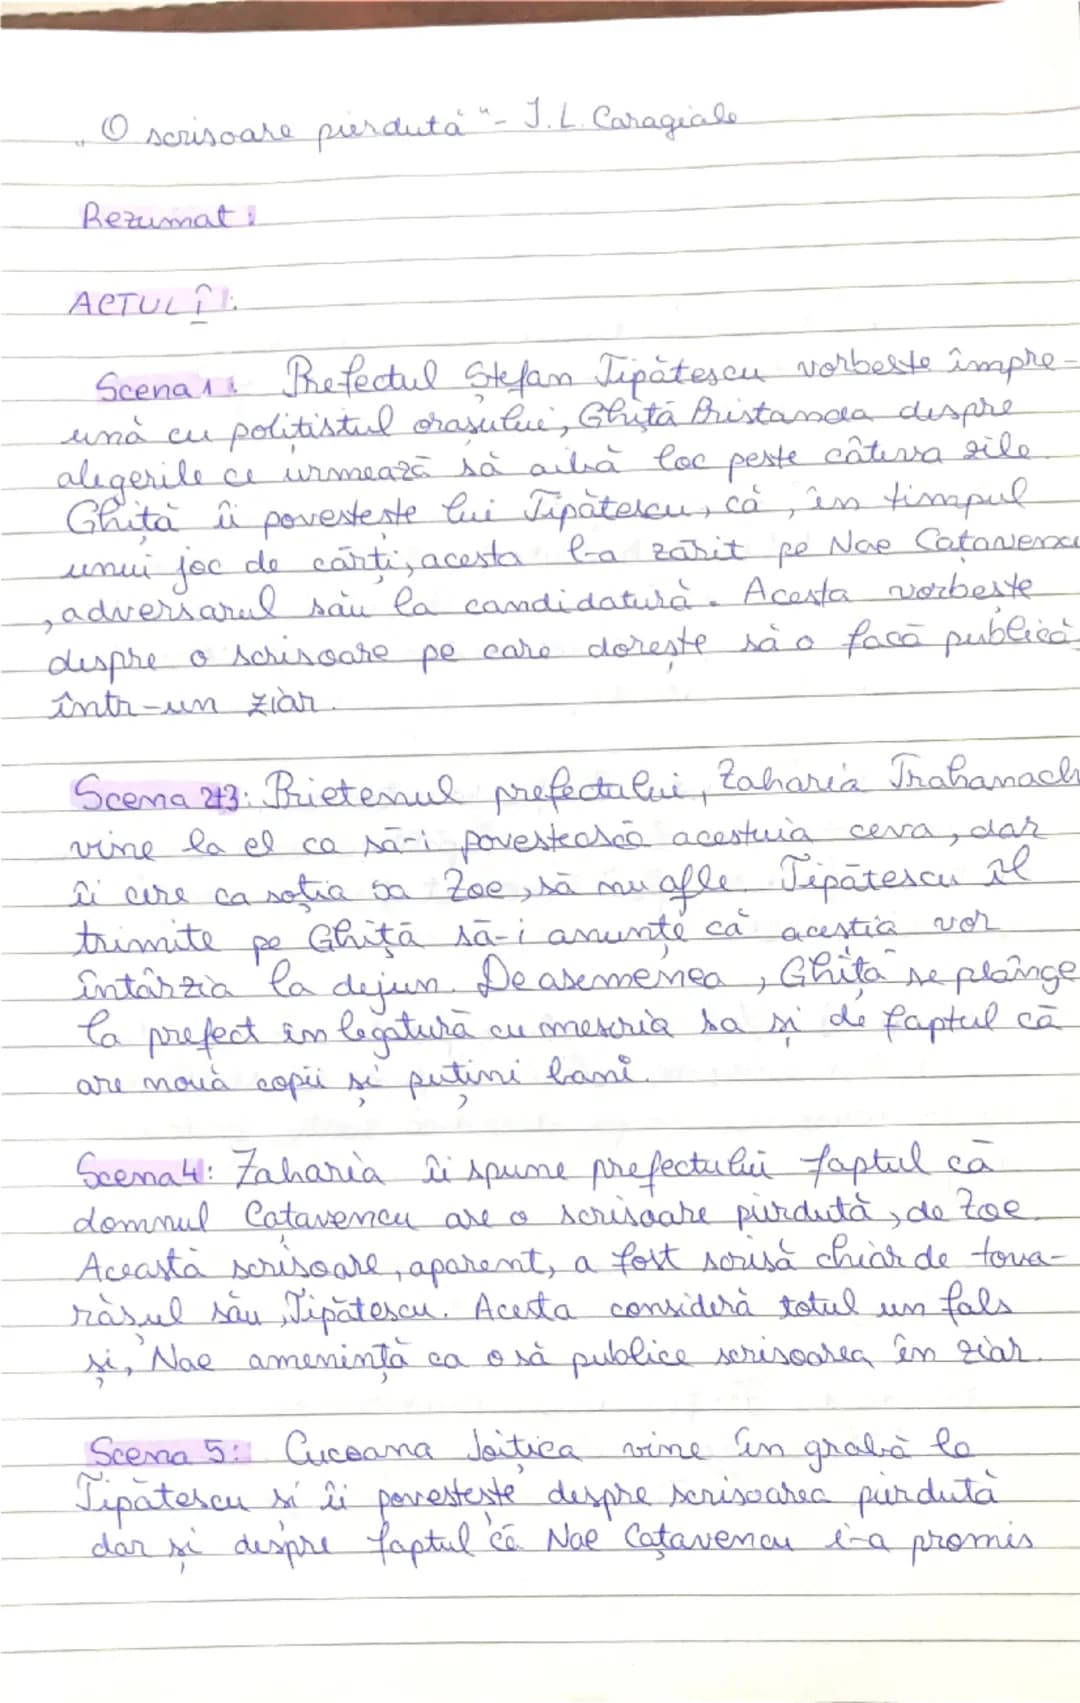 „O scrisoare pierdută" - I.L. Caragiale
Rezumat:
ACTUL I:
Scena 1: Prefectul Ștefan Tipătescu vorbește împre-
ună cu polițistul orașului, Ghiță Pristanda despre
alegerile ce urmează să aibă loc peste câteva zile.
Ghiță îi povestește lui Tipătescu, că, în timpul
unui joc de cărți, acesta l-a zărit pe Nae Cațavencu
, adversarul său la candidatură. Acesta vorbește
despre o scrisoare pe care dorește să o facă publică
într-un ziar.
Scena 2+3: Prietenul prefectului, Zaharia Trahanach
vine la el ca să-i povestească acestuia ceva, dar
îi cere ca soția sa Zoe, să nu afle. Tipătescu îl
trimite pe Ghiță să-i anunțe că aceștia vor
întârzia la dejun. De asemenea, Ghiță se plânge
la prefect în legatură cu meseria sa și de faptul că
are nouă copii și puțini bani.
Scena 4: Zaharia îi spune prefectului faptul că
domnul Cațavencu are o scrisoare pierdută, de Zoe.
Această scrisoare, aparent, a fost scrisă chiar de tova-
rășul său, Tipătescu. Acesta consideră totul un fals
și, Nae amenință ca o să publice scrisoarea în ziar.
Scena 5: Cucoana Joițica vine în grabă la
Tipătescu și îi povestește despre scrisoarea pierdută
dar și despre faptul că Nae Cațavencu i-a promis